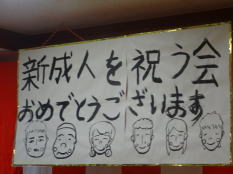 新成人を祝う会
おめでとうございます